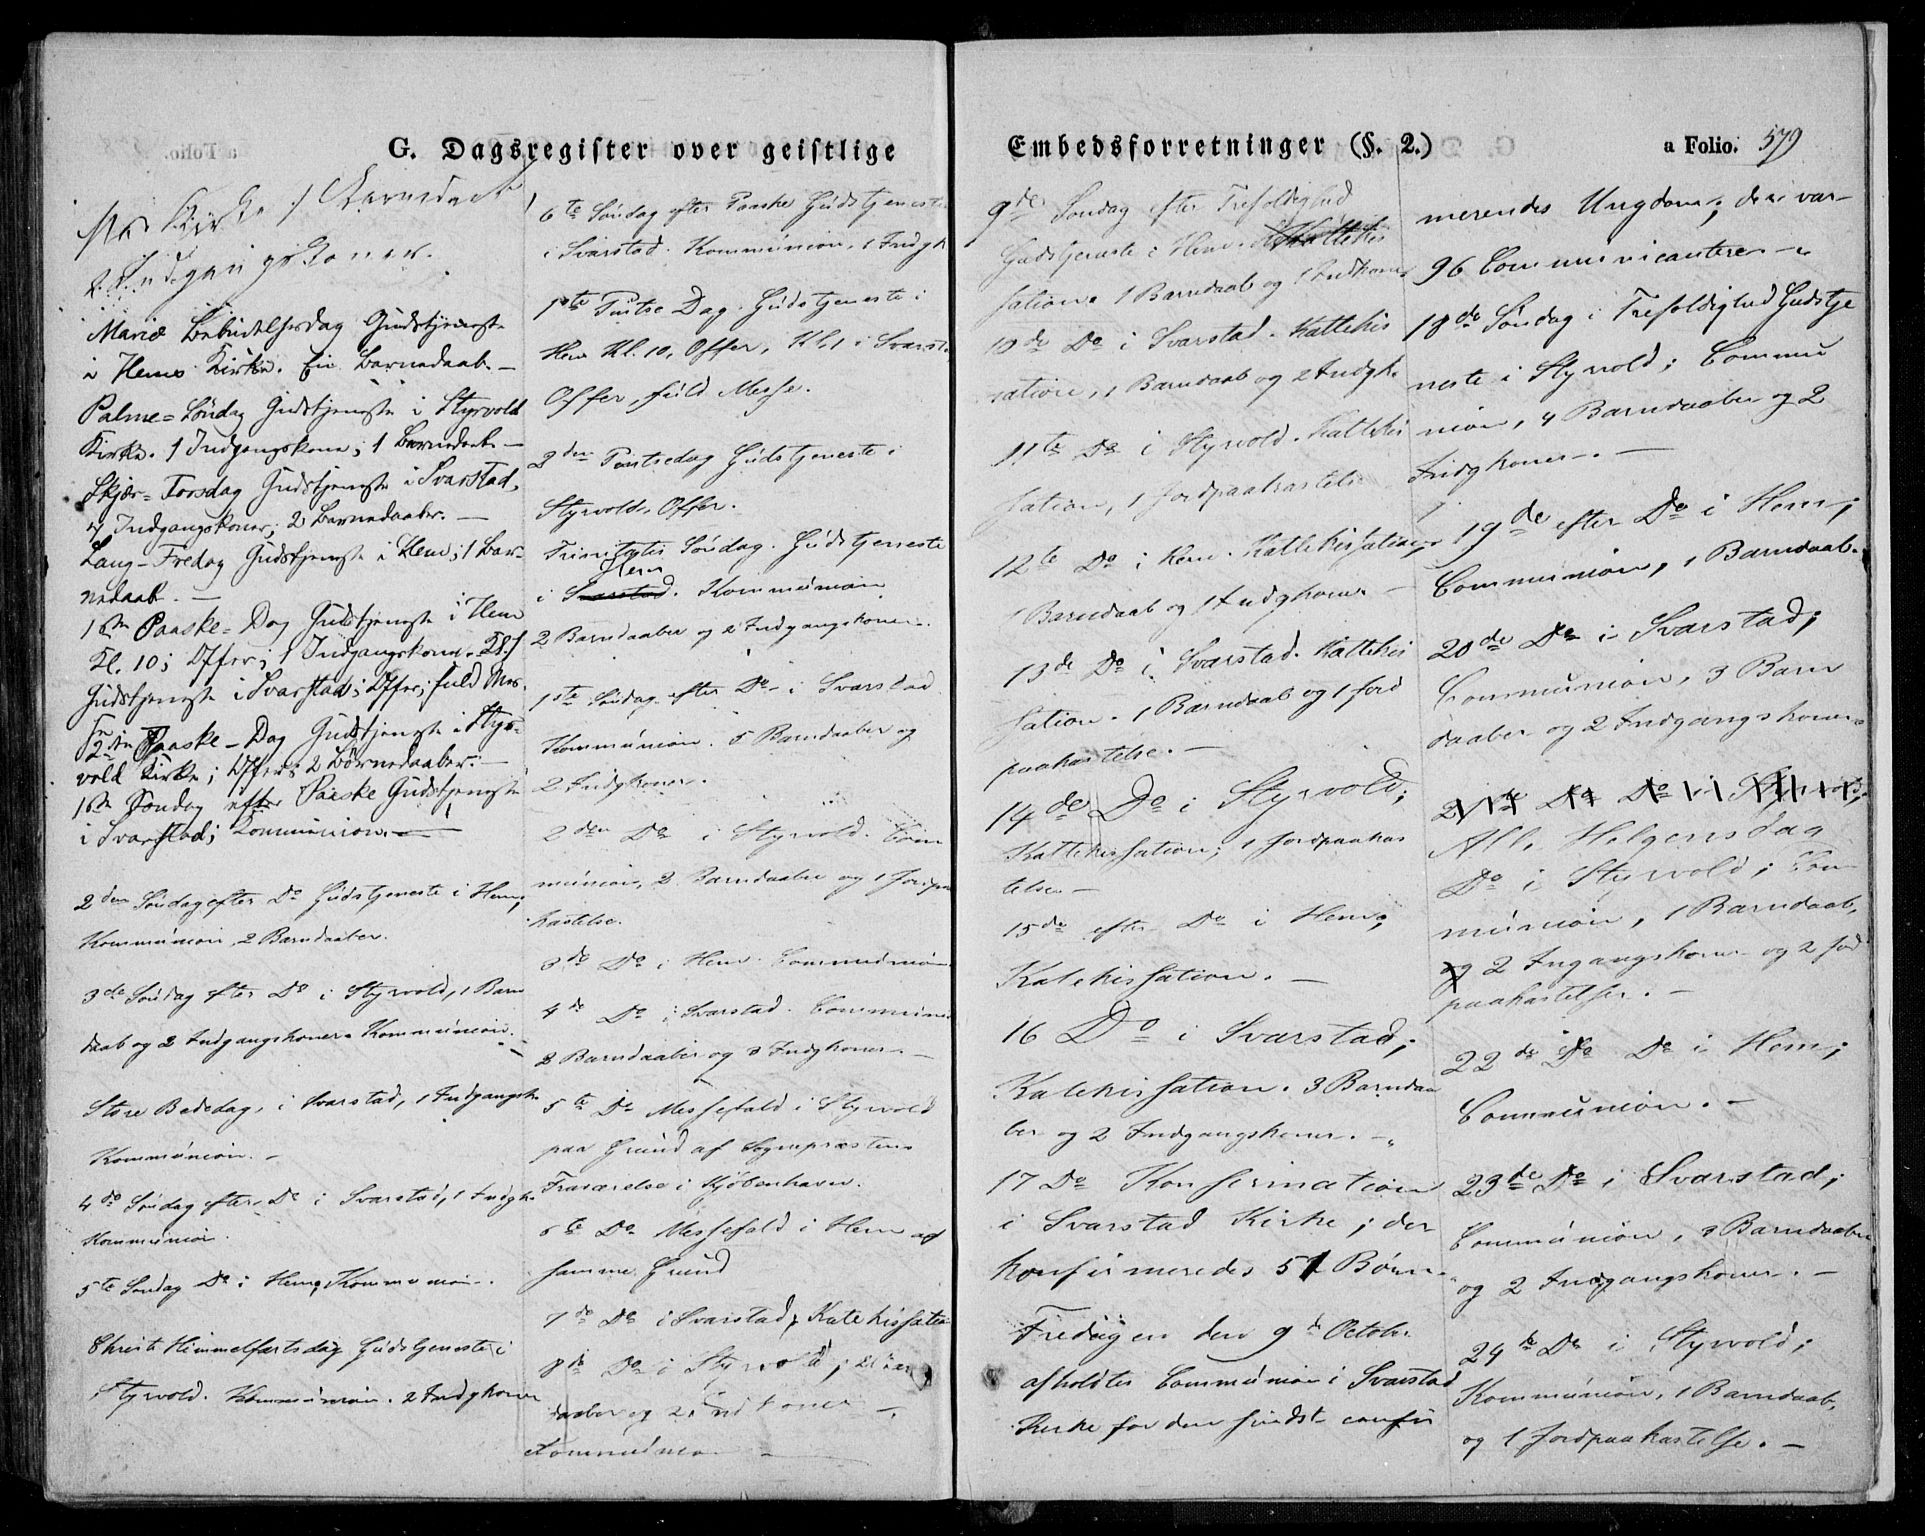 G. Dagsregister over geistlige
Embedsforretninger (§. 2.)
a Folio. 579
Kirke 1 Barnedaab
2 Indgangskoner.
Mariæ Bebudelsesdag Gudstjeneste
i Hems Kirke. En Barnedaab. —
Palme=Søndag Gudstjeneste i Styrvold
Kirke. 1 Indgangskone; 1 Barnedaab. —
Skjær=Torsdag Gudstjeneste i Svarstad,
4 Indgangskoner; 2 Barnedaaber. —
Lang=Fredag Gudstjeneste i Hem; 1 Bar-
nedaab. —
1ste Paaske=Dag Gudstjeneste i Hem
Kl. 10; Offer; 1 Indgangskone. Kl. 1
Gudstjeneste i Svarstad; Offer; fuld Mes-
se
2den Paaske=Dag Gudstjeneste i Styr-
vold Kirke; Offer; 2 Børnedaaber. —
1ste Søndag efter Paaske Gudstjeneste
i Svarstad; Kommunion. —
2den Søndag efter Do Gudstjeneste i Hem;
Kommunion, 2 Barndaaber.
3de Søndag efter Do i Styrvold, 1 Barn
daab og 2 Indgangskoner. Kommunion. —
Store Bededag, i Svarstad, 1 Indgangsk.
Kommunion. —
4de Søndag efter Do i Svarstad, 1 Indgk.
Kommunion.
5te Søndag Do i Hem; Kommunion.
Christi Himmelfartsdag Gudstjeneste i
Styrvold. Kommunion. 2 Indgkoner
6te Søndag efter Paaske Gudstjeneste
i Svarstad. Kommunion, 1 Indgk
1ste Pintse Dag. Gudstjeneste i
Hem Kl. 10, Offer, Kl. 1 i Svarst.
Offer, fuld Messe.
2den Pintsedag Gudstjeneste i
Styrvold. Offer.
Trinitatis Søndag. Gudstjeneste
Hem
i Svarstad. Kommunion
2 Barndaaber og 2 Indgangskoner.
1ste Søndag efter Do i Svarstad
Kommunion. 5 Barndaaber og
2 Indgkoner.
2den Do i Styrvold. Com
munion, 2 Barndaabe og 1 Jordpaa
kastelse.
3de Do i Hem. Communion
4de Do i Svarstad. Communion
2 Barndaaber og 3 Indgkoner. —
5te Do Messefald i Styrvold
paa Grund af Sognepræstens
Fraværelse i Kjøbenhavn.
6te Do Messefald i Hem af
samme Grund
7de Do i Svarstad, Katekisation
8de Do i Styrvold;
daaber og 2 Indkoner —
Kommunion —
9de Søndag efter Trefoldighed
Gudstjeneste i Hem. Kattekis
sation. 1 Barndaab og 1 Indkone
10de Do i Svarstad. Kattekis
sation, 1 Barndaab og 2 Indgk.
11te Do i Styrvold. Kattekis
sation, 1 Jordpaakastelse
12te Do i Hem. Kattekissation
1 Barndaab og 1 Indgkone —
13de Do i Svarstad. Kattekis
sation. 1 Barndaab og 1 Jord
paakastelse. —
14de Do i Styrvold;
Kattekissation; 1 Jordpaakas
telse —
15de efter Do i Hem;
Katekissation. —
16 Do i Svarstad;
Katekissation. 3 Barndaa
ber og 2 Indgangskoner. —
17 Do Konfirmation
i Svarstad Kirke; der
konfirmeredes 51 Børn.
Fredagen den 9de October
afholdtes Communion i Svarstad
Kirke for den sidst confir
merendes Ungdom; der var
96 Communicantere —
18de Søndag i Trefoldighed Gudstje
neste i Styrvold; Commu
nion, 4 Barndaaber og 2
Indgkoner. —
19de efter Do i Hem;
Communion, 1 Barndaab.
20de Do i Svarstad;
Communion, 3 Barn
daaber og 2 Indgangskoner.
21de Do Do i Styrvold;
Alle Helgensdag
Do i Styrvold; Com
munion, 1 Barndaab,
og 2 Ingangskoner og 2 Jod
paakastelser. —
22de Do Do i Hem;
Communion. —
23de Do i Svarstad;
Communion, 3 Barndaaber
og 2 Indgangskoner. —
24de Do i Styrvold;
Kommunion, 1 Barndaab,
og 1 Jordpaakastelse. —